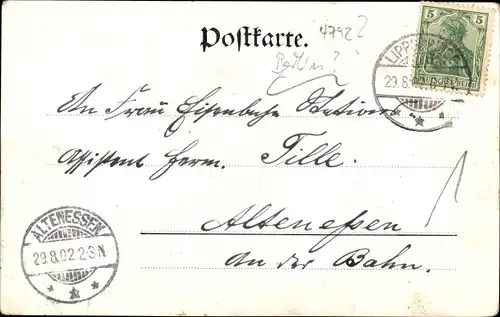 4792?
Postkarte.
Berlin?
5
LIPP
29.8.
An Frau Eisenbahn Stations
Assistent Herm. Tille.
Altenessen
An der Bahn.
ALTENESSEN
29.8.02.2-3N